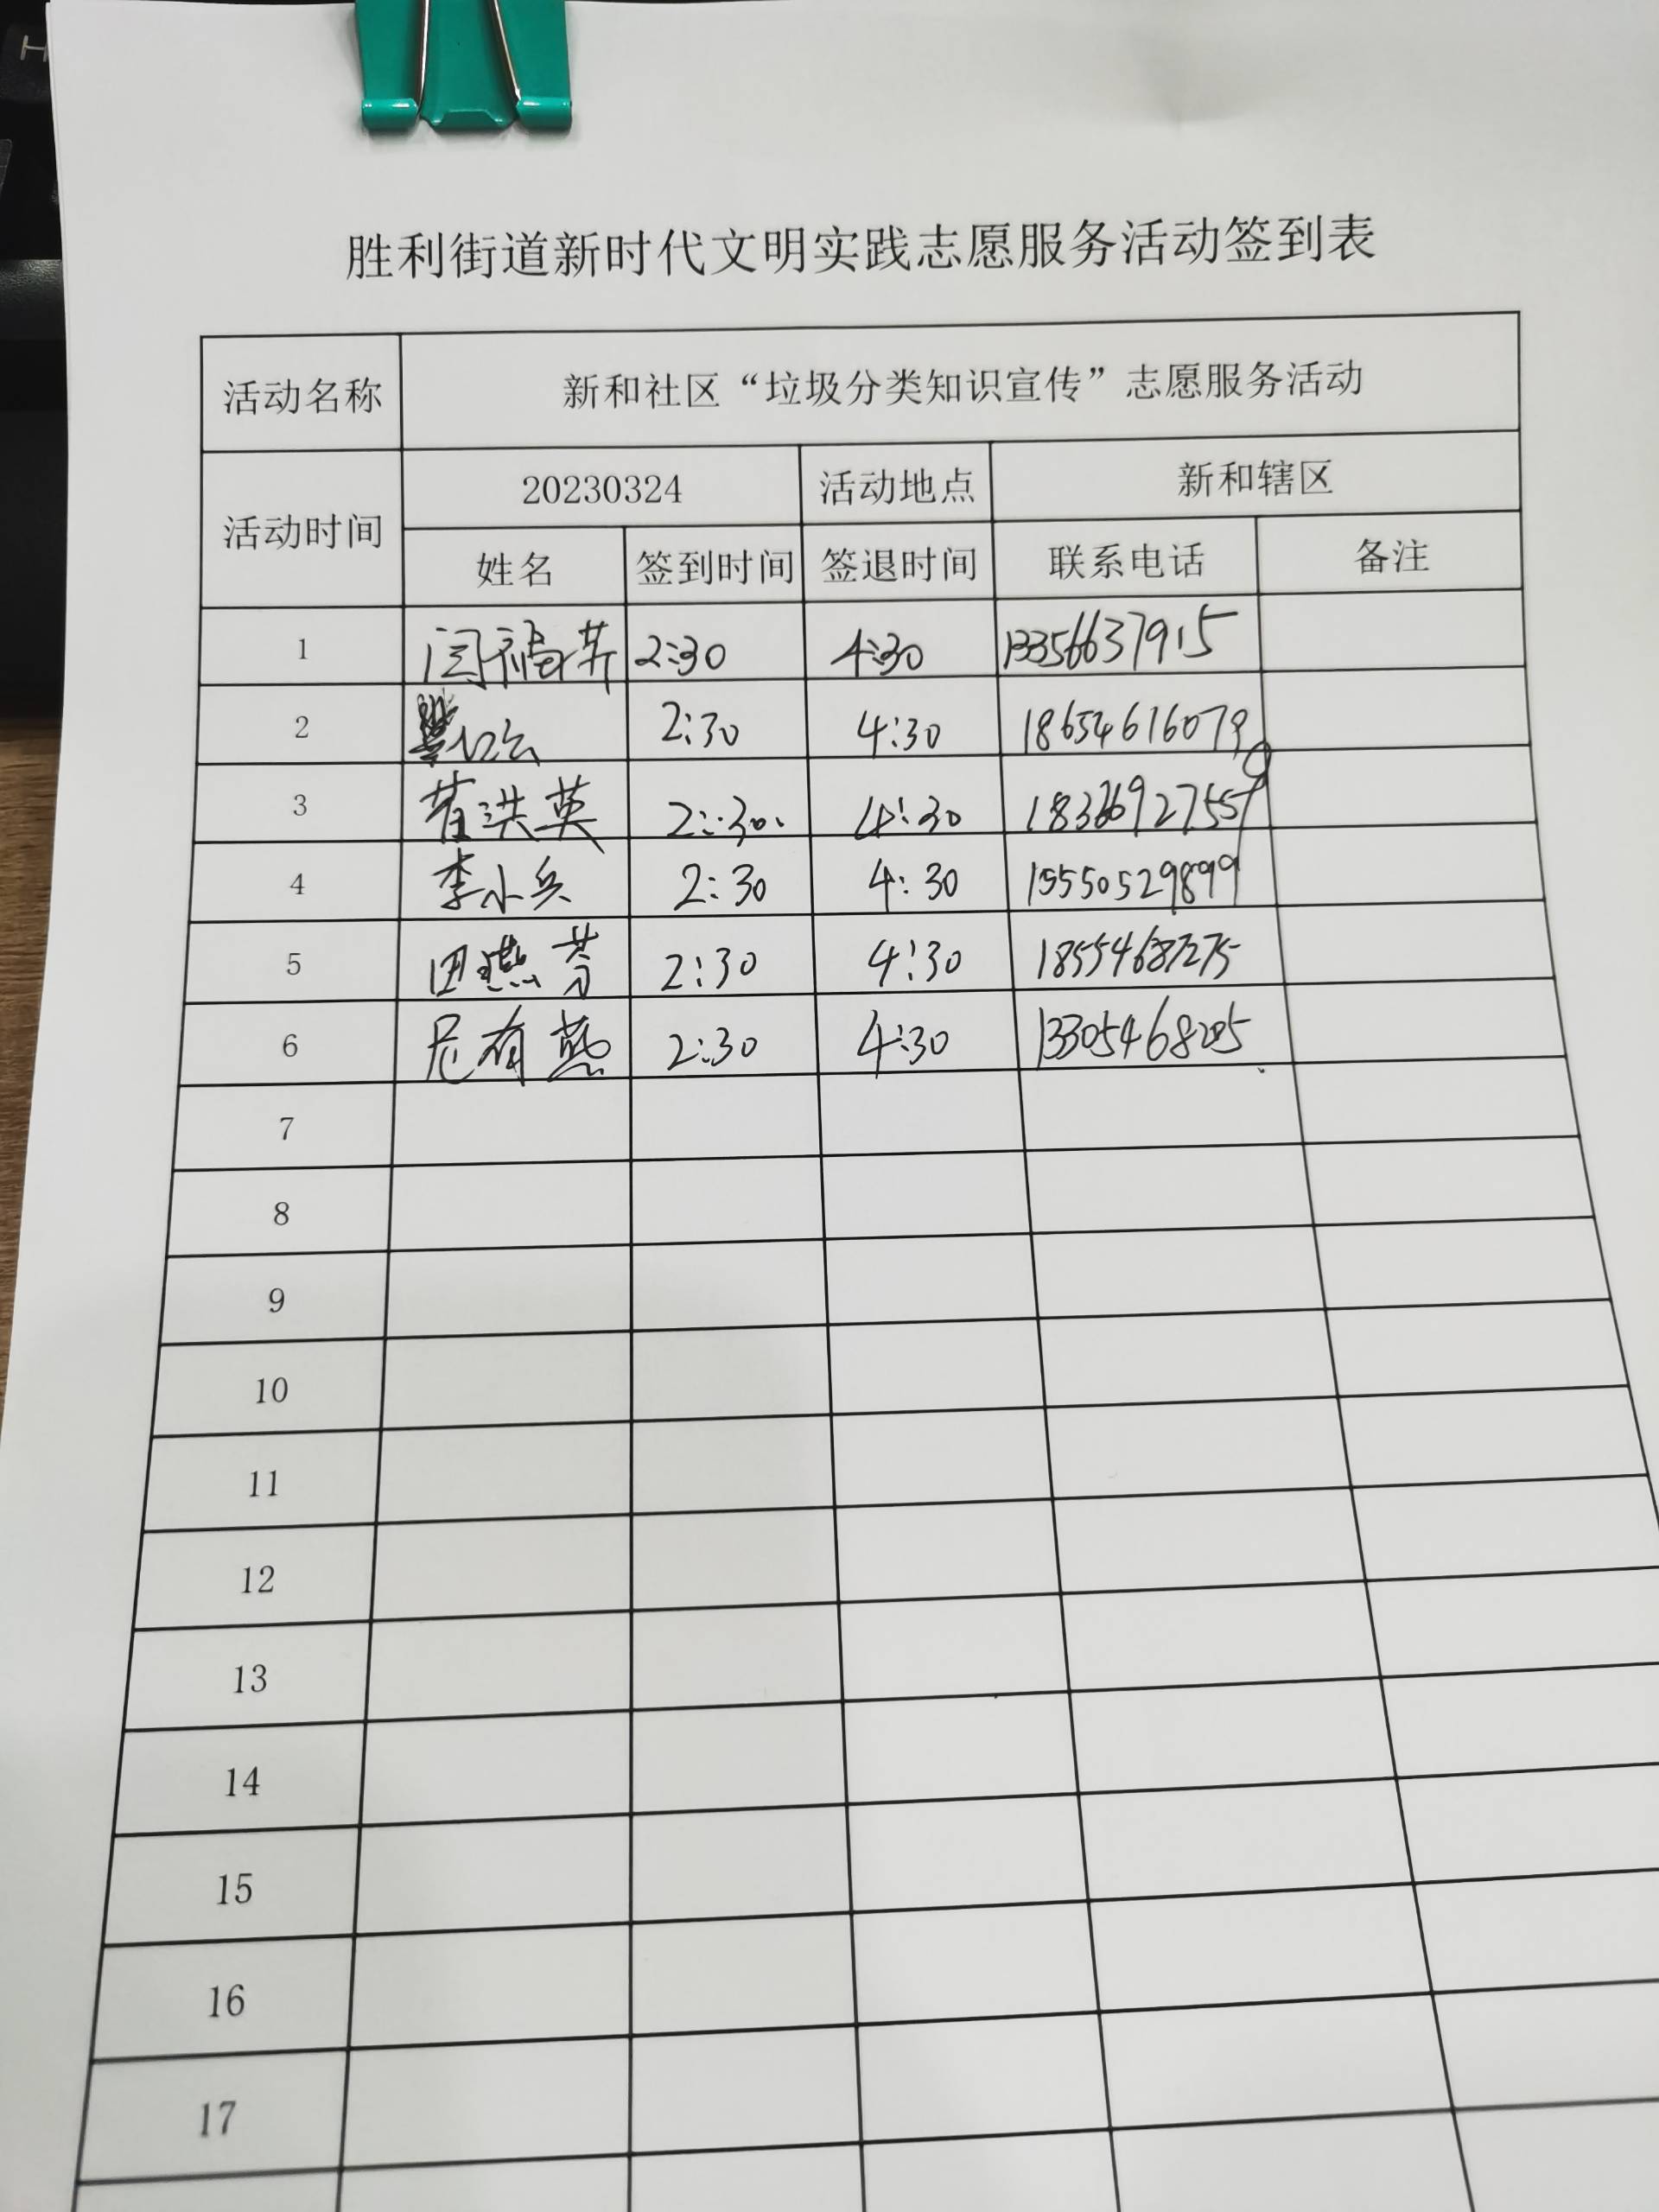 胜利街道新时代文明实践志愿服务活动签到表
活动名称 新和社区“垃圾分类知识宣传”志愿服务活动
活动时间 20230324 活动地点 新和辖区
姓名 签到时间 签退时间 联系电话 备注
1 闫福芹 2:30 4:30 13356637915
2 2:30 4:30 18654616079
3 洪英 2:30 4:30
4 李小兵 2:30 4:30 15550529899
5 田燕芳 2:30 4:30 18554687275
6 尼有燕 2:30 4:30 13305468205
7
8
9
10
11
12
13
14
15
16
17